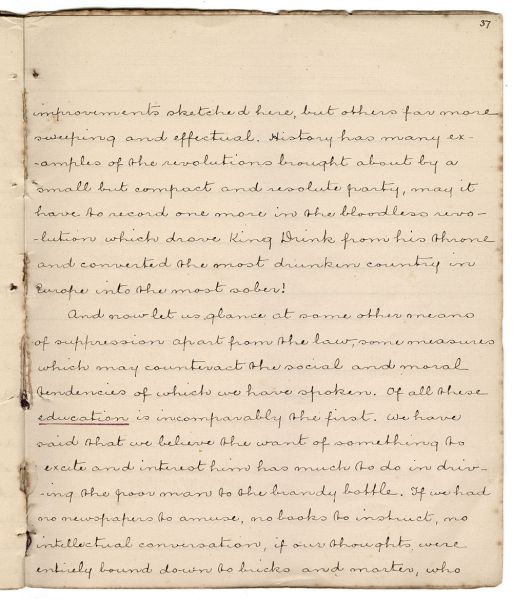 37
improvements sketched here, but others far more
sweeping and effectual. History has many ex-
-amples of the revolutions brought about by a
small but compact and resolute party, may it
have to record one more in the bloodless revo-
-lution which drove King Drink from his throne
and converted the most drunken country in
Europe into the most sober!
And now let us, glance at some other means
of suppression apart from the law, some measures
which may counteract the social and moral
tendencies of which we have spoken. Of all these
education is incomparably the first. We have
said that we believe the want of something to
excite and interest him has much to do in driv-
-ing the poor man to the brandy bottle. If we had
no newspapers to amuse, no books to instruct, no
intellectual conversation, if our thoughts were
entirely bound down to bricks and mortar, who